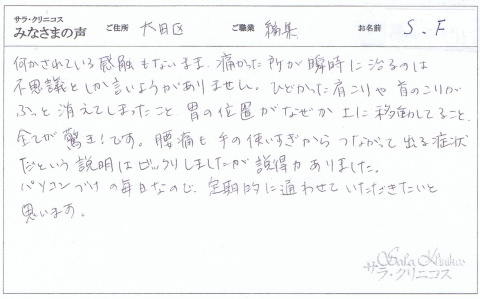 サラ・クリニコス
みなさまの声 ご住所 大田区 ご職業 編集 お名前 S.F
何かされている感触もないまま、痛かった所が瞬時に治るのは
不思議としか言いようがありません。ひどかった肩こりや首のこりが
ふっと消えてしまったこと、胃の位置がなぜか上に移動してること、
全てが驚き!です。腰痛も手の使いすぎからつながって出る症状
だという説明はビックリしましたが説得力ありました。
パソコンづけの毎日なので、定期的に通わせていただきたいと
思います。
Sala Klinikos
サラ・クリニコス